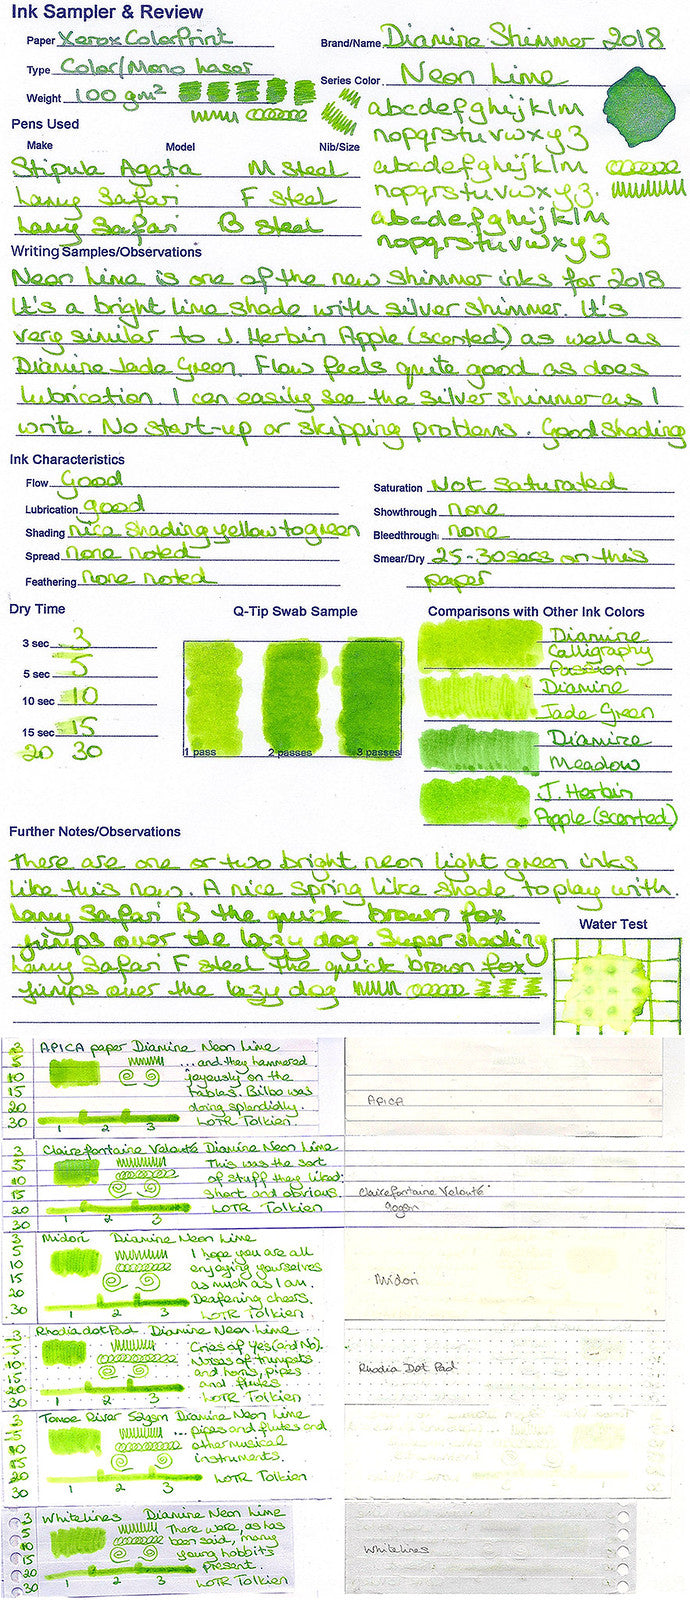 Ink Sampler & Review
Paper Xerox ColorPrint
Brand/Name Diamine Shimmer 2018
Type Color/Mono Laser
Series Color Neon Lime
Weight 100 gm²
abcdefghijklm
nopqrstuvwxyz
Pens Used
Make Model Nib/Size
Stipula Agata M Steel
abcdefghijklm
Lamy Safari F steel
nopqrstuvwxyz
Lamy Safari B steel
abcdefghijklm
nopqrstuvwxyz
Writing Samples/Observations
Neon Lime is one of the new shimmer inks for 2018
It's a bright lime shade with silver shimmer. It's
very similar to J. Herbin Apple (scented) as well as
Diamine Jade Green. Flow feels quite good as does
lubrication. I can easily see the silver shimmer as I
write. No start-up or skipping problems. Good shading
Ink Characteristics
Flow Good
Saturation Not Saturated
Lubrication good
Showthrough none
Shading nice shading yellow to green
Bleedthrough none
Spread none noted
Smear/Dry 25-30secs on this
paper
Feathering none noted
Dry Time
3 sec 3
5 sec 5
10 sec 10
15 sec 15
20 30
Q-Tip Swab Sample
1 pass 2 passes 3 passes
Comparisons with Other Ink Colors
Diamine
Calligraphy
Passion
Diamine
Jade Green
Diamine
Meadow
J. Herbin
Apple (scented)
Further Notes/Observations
There are one or two bright neon light green inks
like this now. A nice spring like shade to play with.
Lamy Safari B the quick brown fox
jumps over the lazy dog. Super shading
Lamy Safari F steel the quick brown fox
jumps over the lazy dog
Water Test
3
5
10
15
20
30
APICA paper Diamine Neon Lime
...and they hammered
joyously on the
tables. Bilbo was
doing splendidly.
LOTR Tolkien
1 2 3
APICA
3
5
10
15
20
30
Clairefontaine Velouté Diamine Neon Lime
This was the sort
of stuff they liked:
short and obvious.
LOTR Tolkien
1 2 3
Clairefontaine Velouté
90gsm
3
5
10
15
20
30
Midori Diamine Neon Lime
I hope you are all
enjoying yourselves
as much as I am.
Deafening cheers.
LOTR Tolkien
1 2 3
Midori
3
5
10
15
20
30
Rhodia dot Pad Diamine Neon Lime
Cries of Yes (and No).
Noises of trumpets
and horns, pipes
and flutes
LOTR Tolkien
1 2 3
Rhodia Dot Pad
3
5
10
15
20
30
Tomoe River 52gsm Diamine Neon Lime
... pipes and flutes and
other musical
instruments.
LOTR Tolkien
1 2 3
3
5
10
15
20
30
Whitelines Diamine Neon Lime
There were, as has
been said, many
young hobbits
present.
LOTR Tolkien
1 2 3
Whitelines